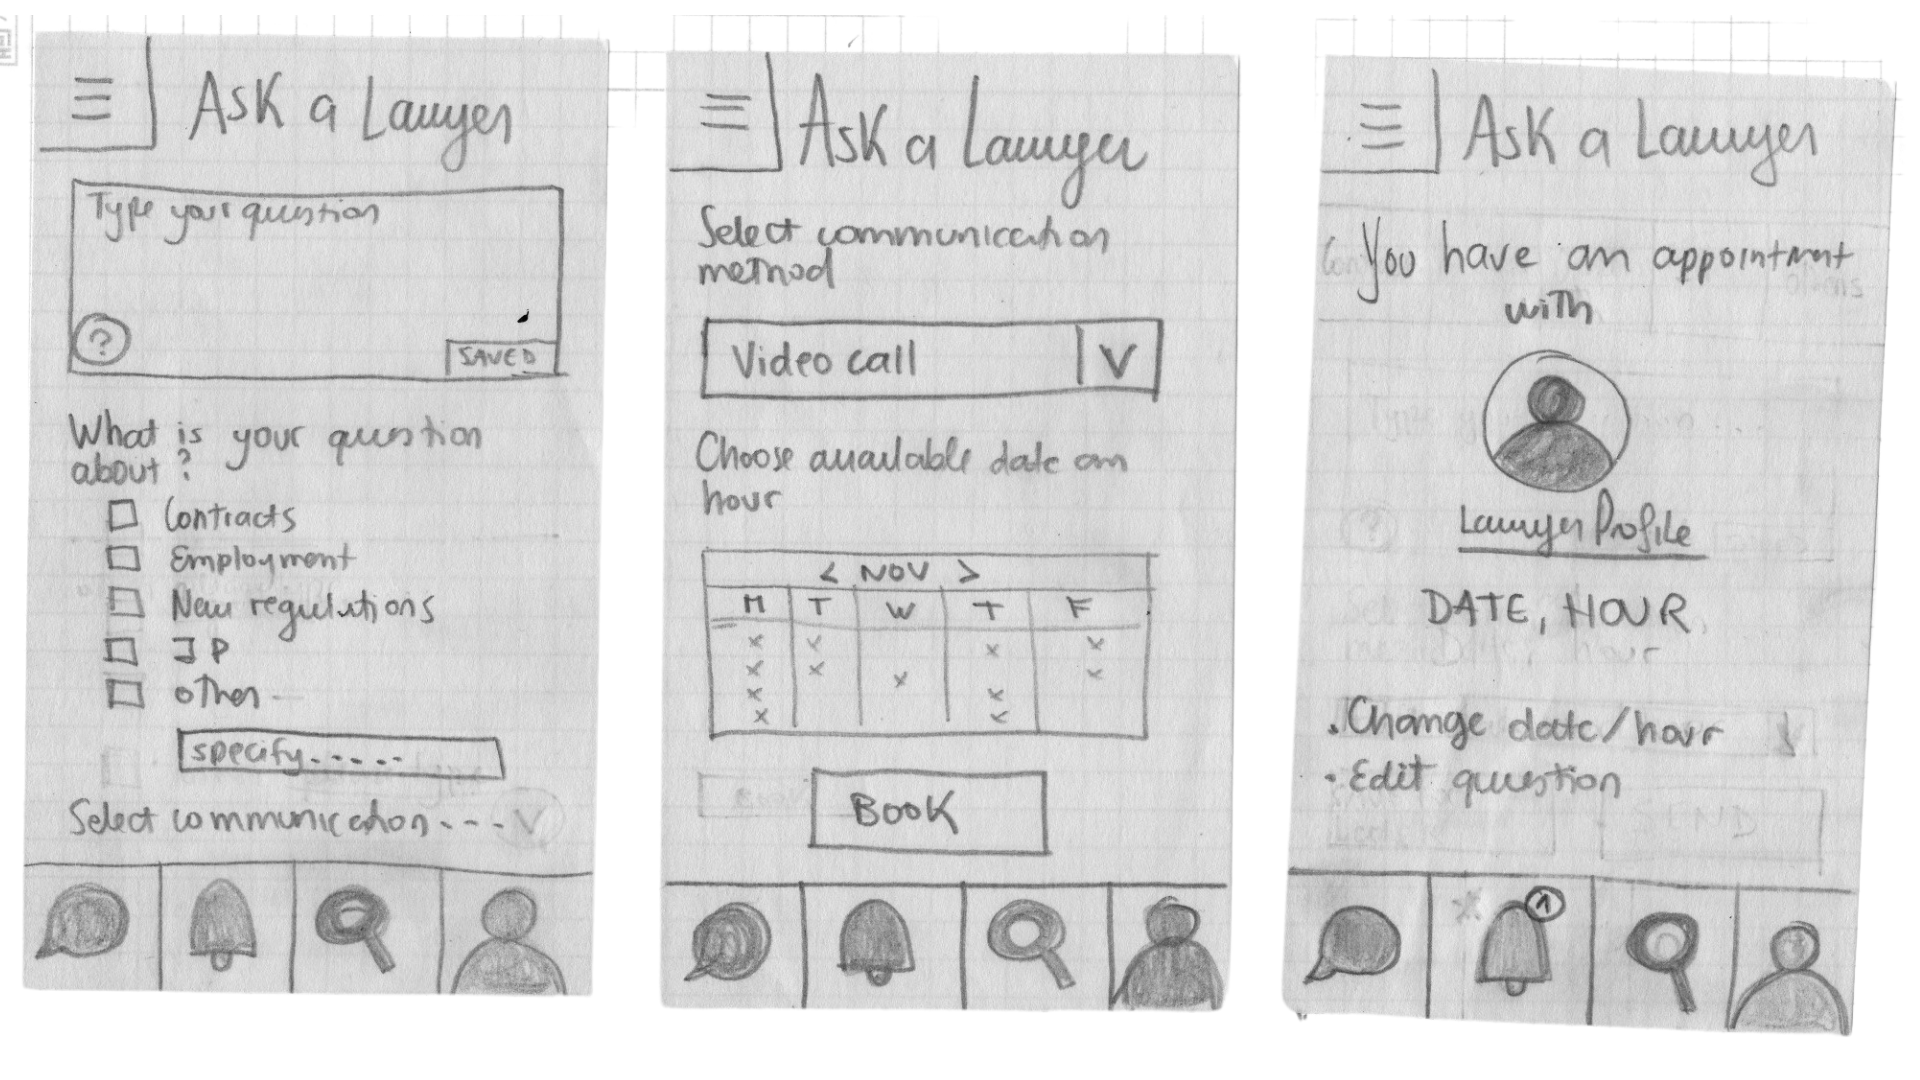 Ask a Lawyer
Type your question
?
SAVED
What is your question
about?
Contracts
Employment
New regulations
IP
other
specify.....
Select communication---
V
Ask a Lawyer
Select communication
method
Video call
V
Choose available date an
hour
< NOV >
M T W T F
x x x x
x x x x
x x
x x
BOOK
Ask a Lawyer
You have an appointment
with
Lawyer Profile
DATE, HOUR
. Change date/hour
- Edit question
1